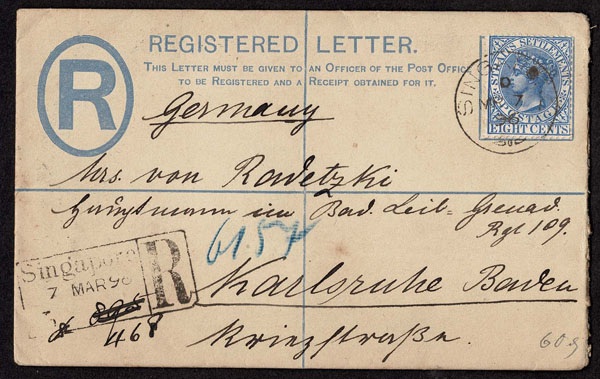 REGISTERED LETTER.
THIS LETTER MUST BE GIVEN TO AN OFFICER OF THE POST OFFICE
TO BE REGISTERED AND A RECEIPT OBTAINED FOR IT.
R
STRAITS SETTLEMENTS
POSTAGE
EIGHT CENTS
Germany
Mrs. von Radetzki
Hauptmann im Bad. Leib-Grenad.
Rgt 109.
61.57
Karlsruhe Baden
Kriegstraße.
Singapore
7 MAR 96
R
468
60 g